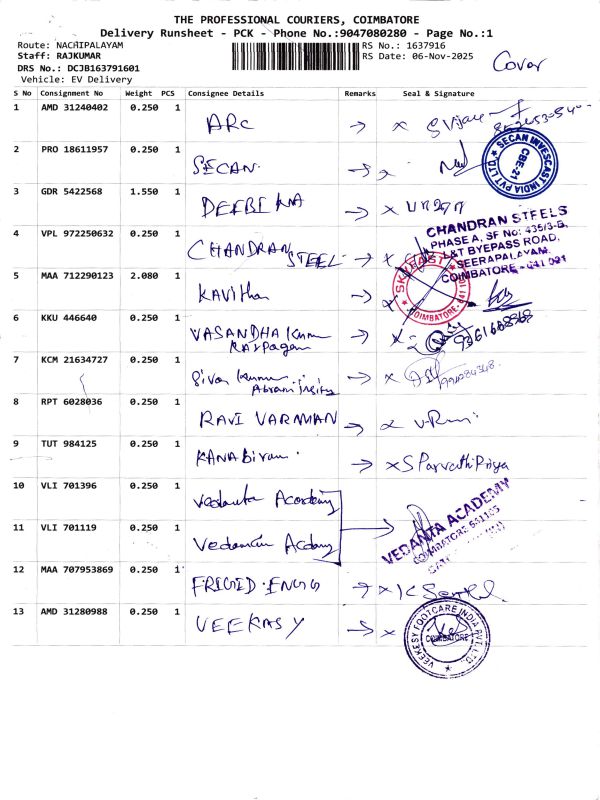 THE PROFESSIONAL COURIERS, COIMBATORE
Delivery Runsheet - PCK - Phone No.:9047080280 - Page No.:1
Route: NACHIPALAYAM
Staff: RAJKUMAR
DRS No.: DCJB163791601
Vehicle: EV Delivery
RS No.: 1637916
RS Date: 06-Nov-2025
Cover
S No Consignment No Weight PCS Consignee Details Remarks Seal & Signature
1 AMD 31240402 0.250 1 ARC
2 PRO 18611957 0.250 1 SECAN
SECAN INVESCAST INDIA PVT LTD
CBE-21
3 GDR 5422568 1.550 1
4 VPL 972250632 0.250 1 CHANDRAN STEEL
CHANDRAN STEELS
PHASE A, SF No: 435/3-B,
L&T BYEPASS ROAD,
SEERAPALAYAM,
COIMBATORE - 641 021
5 MAA 712290123 2.080 1 Kavitha
COIMBATORE
6 KKU 446640 0.250 1 VASANDHA Kumar
7 KCM 21634727 0.250 1 Siva Kumar
8 RPT 6028036 0.250 1 RAVI VARMAN
9 TUT 984125 0.250 1 S Parvathi Priya
10 VLI 701396 0.250 1 Vedanta Academy
VEDANTA ACADEMY
11 VLI 701119 0.250 1
12 MAA 707953869 0.250 1 FRIGID ENGG
13 AMD 31280988 0.250 1 VEEKASY
VEEKESY FOOTCARE INDIA PVT. LTD.
COIMBATORE